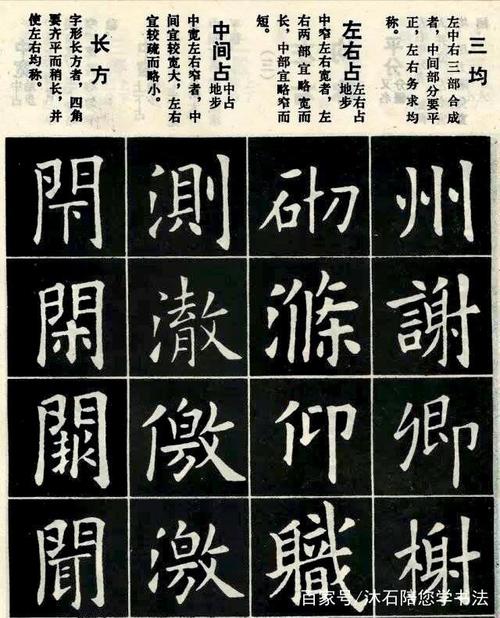 三均
左中右三部合成
者，中间部分要平
正，左右务求均
称。
左右占
左右占
地步
中窄左右宽者，左
右两部宜略宽而
长，中部宜略窄而
短。
中间占
中占
地步
中宽左右窄者，中
间宜较宽大，左右
宜较疏而略小。
长方
字形长方者，四角
要齐平而稍长，并
使左右均称。
州
謝
卿
榭
砌
滌
仰
職
測
澈
儌
激
閇
閑
聞
百家号/沐石陪您学书法